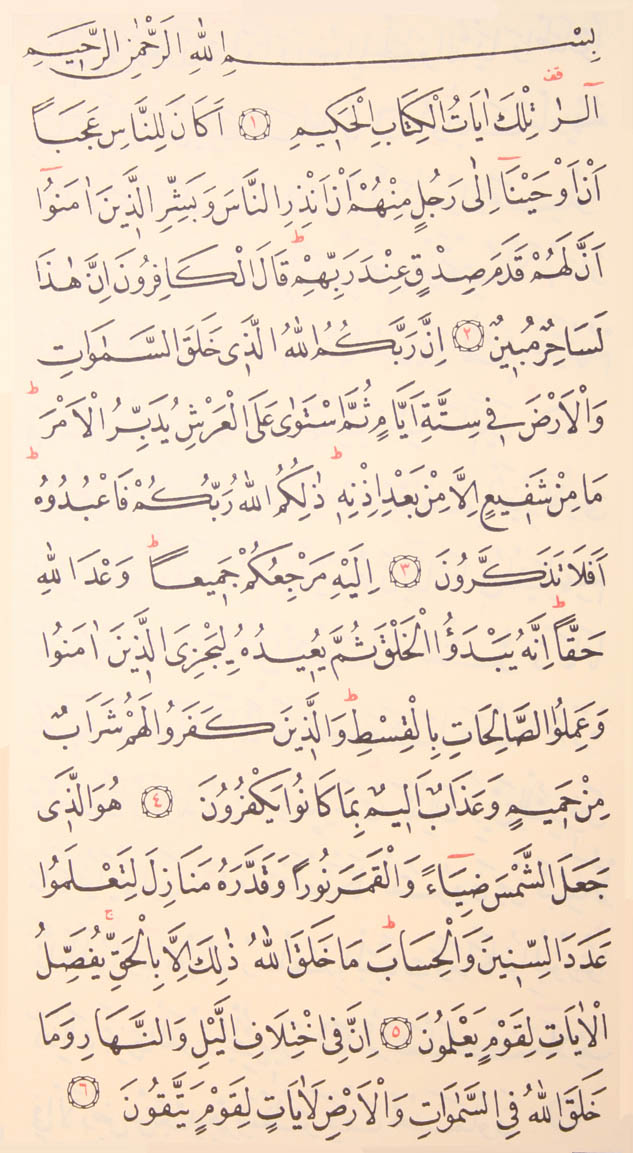 بِسْمِ اللهِ الرَّحْمٰنِ الرَّحِيمِ
الٓرٰ قف تِلْكَ اٰيَاتُ الْكِتَابِ الْحَكِيمِ ١ اَكَانَ لِلنَّاسِ عَجَبًا
اَنْ اَوْحَيْنَٓا اِلٰى رَجُلٍ مِنْهُمْ اَنْ اَنْذِرِ النَّاسَ وَبَشِّرِ الَّذِينَ اٰمَنُٓوا
اَنَّ لَهُمْ قَدَمَ صِدْقٍ عِنْدَ رَبِّهِمْ ط قَالَ الْكَافِرُونَ اِنَّ هٰذَا
لَسَاحِرٌ مُبِينٌ ٢ اِنَّ رَبَّكُمُ اللهُ الَّذِى خَلَقَ السَّمٰوَاتِ
وَالْاَرْضَ فِى سِتَّةِ اَيَّامٍ ثُمَّ اسْتَوٰى عَلَى الْعَرْشِ يُدَبِّرُ الْاَمْرَ ط
مَا مِنْ شَفِيعٍ اِلَّا مِنْ بَعْدِ اِذْنِهِ ط ذٰلِكُمُ اللهُ رَبُّكُمْ فَاعْبُدُوهُ ط
اَفَلَا تَذَكَّرُونَ ٣ اِلَيْهِ مَرْجِعُكُمْ جَمِيعًا ط وَعْدَ اللهِ
حَقًّا ط اِنَّهُ يَبْدَؤُا الْخَلْقَ ثُمَّ يُعِيدُهُ لِيَجْزِىَ الَّذِينَ اٰمَنُوا
وَعَمِلُوا الصَّالِحَاتِ بِالْقِسْطِ ط وَالَّذِينَ كَفَرُوا لَهُمْ شَرَابٌ
مِنْ حَمِيمٍ وَعَذَابٌ اَلِيمٌ بِمَا كَانُوا يَكْفُرُونَ ٤ هُوَ الَّذِى
جَعَلَ الشَّمْسَ ضِيَٓاءً وَالْقَمَرَ نُورًا وَقَدَّرَهُ مَنَازِلَ لِتَعْلَمُوا
عَدَدَ السِّنِينَ وَالْحِسَابَ ط مَا خَلَقَ اللهُ ذٰلِكَ اِلَّا بِالْحَقِّ ج يُفَصِّلُ
الْاٰيَاتِ لِقَوْمٍ يَعْلَمُونَ ٥ اِنَّ فِى اخْتِلَافِ الَّيْلِ وَالنَّهَارِ وَمَا
خَلَقَ اللهُ فِى السَّمٰوَاتِ وَالْاَرْضِ لَاٰيَاتٍ لِقَوْمٍ يَتَّقُونَ ٦